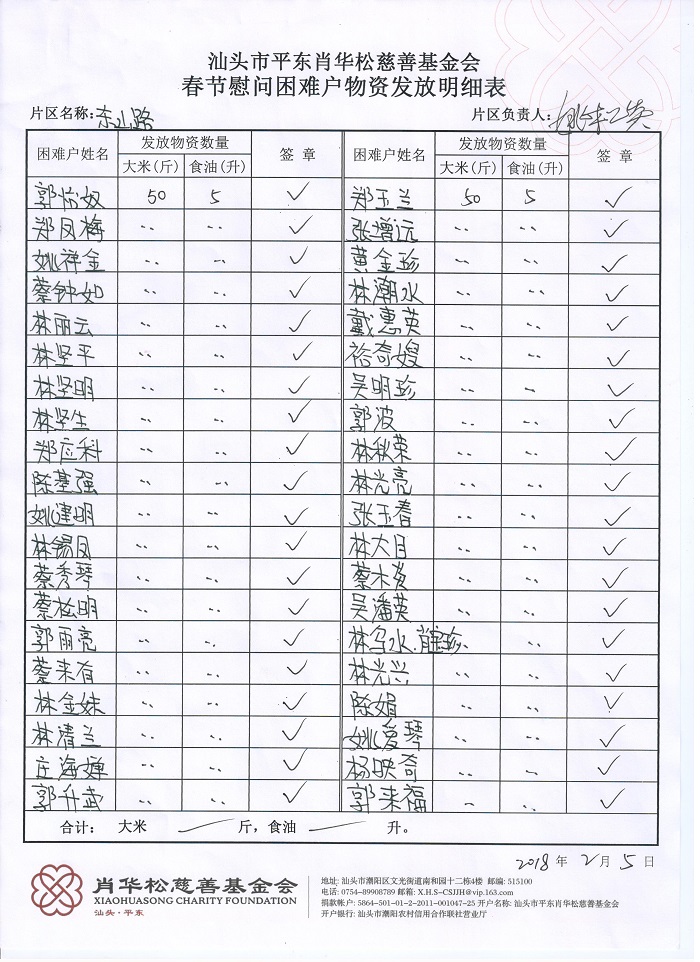 汕头市平东肖华松慈善基金会
春节慰问困难户物资发放明细表
片区名称:东山路 片区负责人:
困难户姓名 发放物资数量 签章 困难户姓名 发放物资数量 签章
大米(斤) 食油(升) 大米(斤) 食油(升)
郭怡奴 50 5 ✓ 郑玉兰 50 5 ✓
郑凤梅 ·· ·· ✓ 张增远 ·· ·· ✓
姚祥金 ·· ·· ✓ 黄金珍 ·· ·· ✓
蔡钟如 ·· ·· ✓ 林潮水 ·· ·· ✓
林丽云 ·· ·· ✓ 戴惠英 ·· ·· ✓
林坚平 ·· ·· ✓ 奇嫂 ·· ·· ✓
林坚明 ·· ·· ✓ 吴明珍 ·· ·· ✓
林坚生 ·· ·· ✓ 郭波 ·· ·· ✓
郑应科 ·· ·· ✓ 林秋荣 ·· ·· ✓
陈基强 ·· ·· ✓ 林光亮 ·· ·· ✓
姚建明 ·· ·· ✓ 张玉春 ·· ·· ✓
林锡凤 ·· ·· ✓ 林大目 ·· ·· ✓
蔡秀琴 ·· ·· ✓ 蔡木炎 ·· ·· ✓
蔡松明 ·· ·· ✓ 吴潘英 ·· ·· ✓
郭雨亮 ·· ·· ✓ 林乌水 ·· ·· ✓
蔡来有 ·· ·· ✓ 林光兴 ·· ·· ✓
林金妹 ·· ·· ✓ 陈娟 ·· ·· ✓
林清兰 ·· ·· ✓ 姚爱琴 ·· ·· ✓
庄海婵 ·· ·· ✓ 杨映奇 ·· ·· ✓
郭升武 ·· ·· ✓ 郭来福 ·· ·· ✓
合计: 大米 斤,食油 升。
2018年2月5日
肖华松慈善基金会
XIAOHUASONG CHARITY FOUNDATION
汕头·平东
地址: 汕头市潮阳区文光街道南和园十二栋4楼 邮编: 515100
电话: 0754-89908789 邮箱: X.H.S-CSJJH@vip.163.com
捐款帐户: 5864-501-01-2-2011-001047-25 开户名称: 汕头市平东肖华松慈善基金会
开户银行: 汕头市潮阳农村信用合作联社营业厅